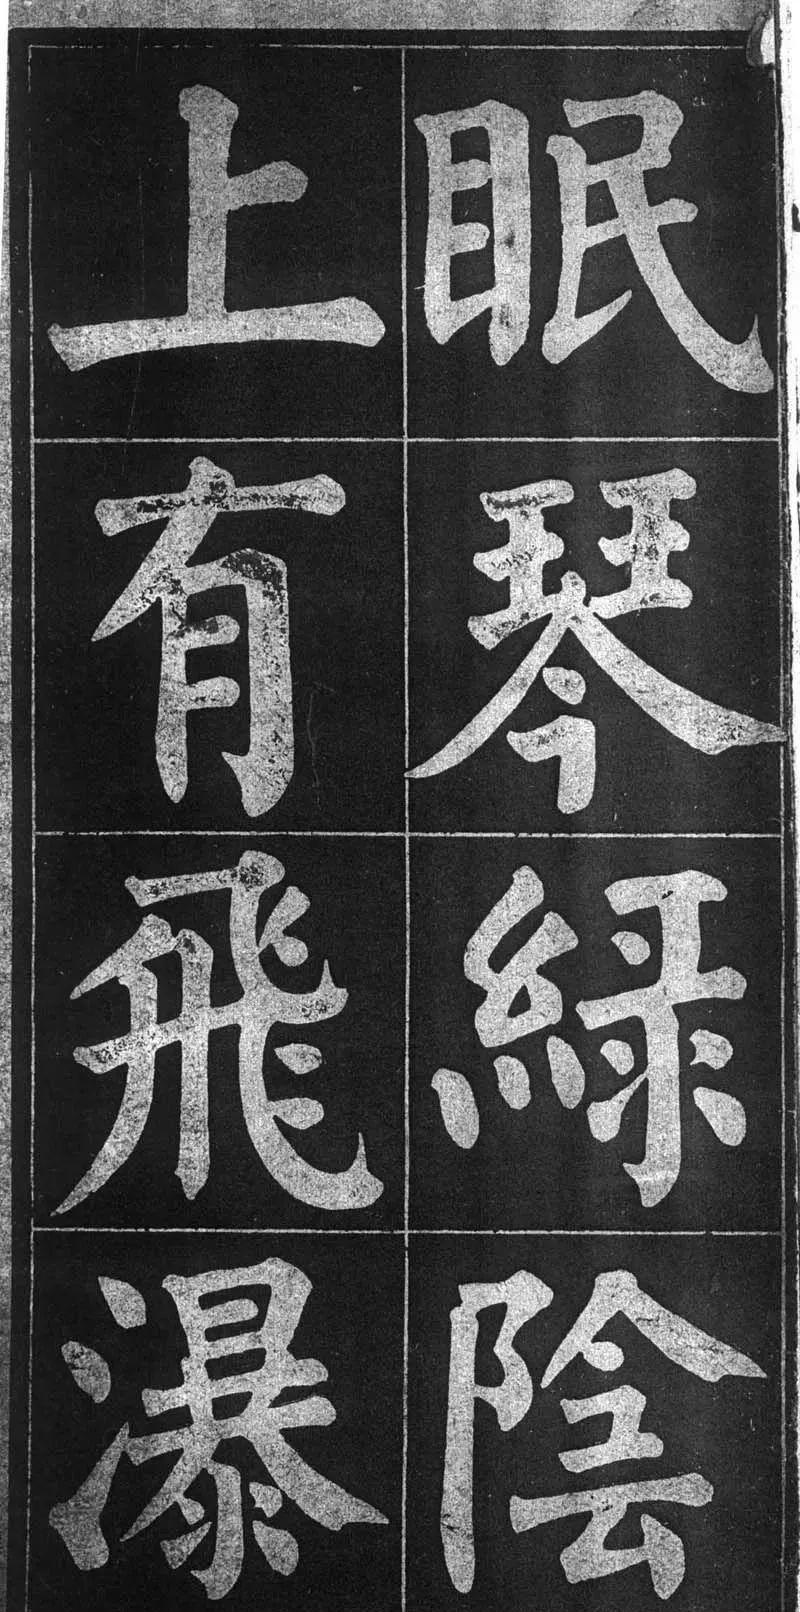 眠琴綠陰
上有飛瀑